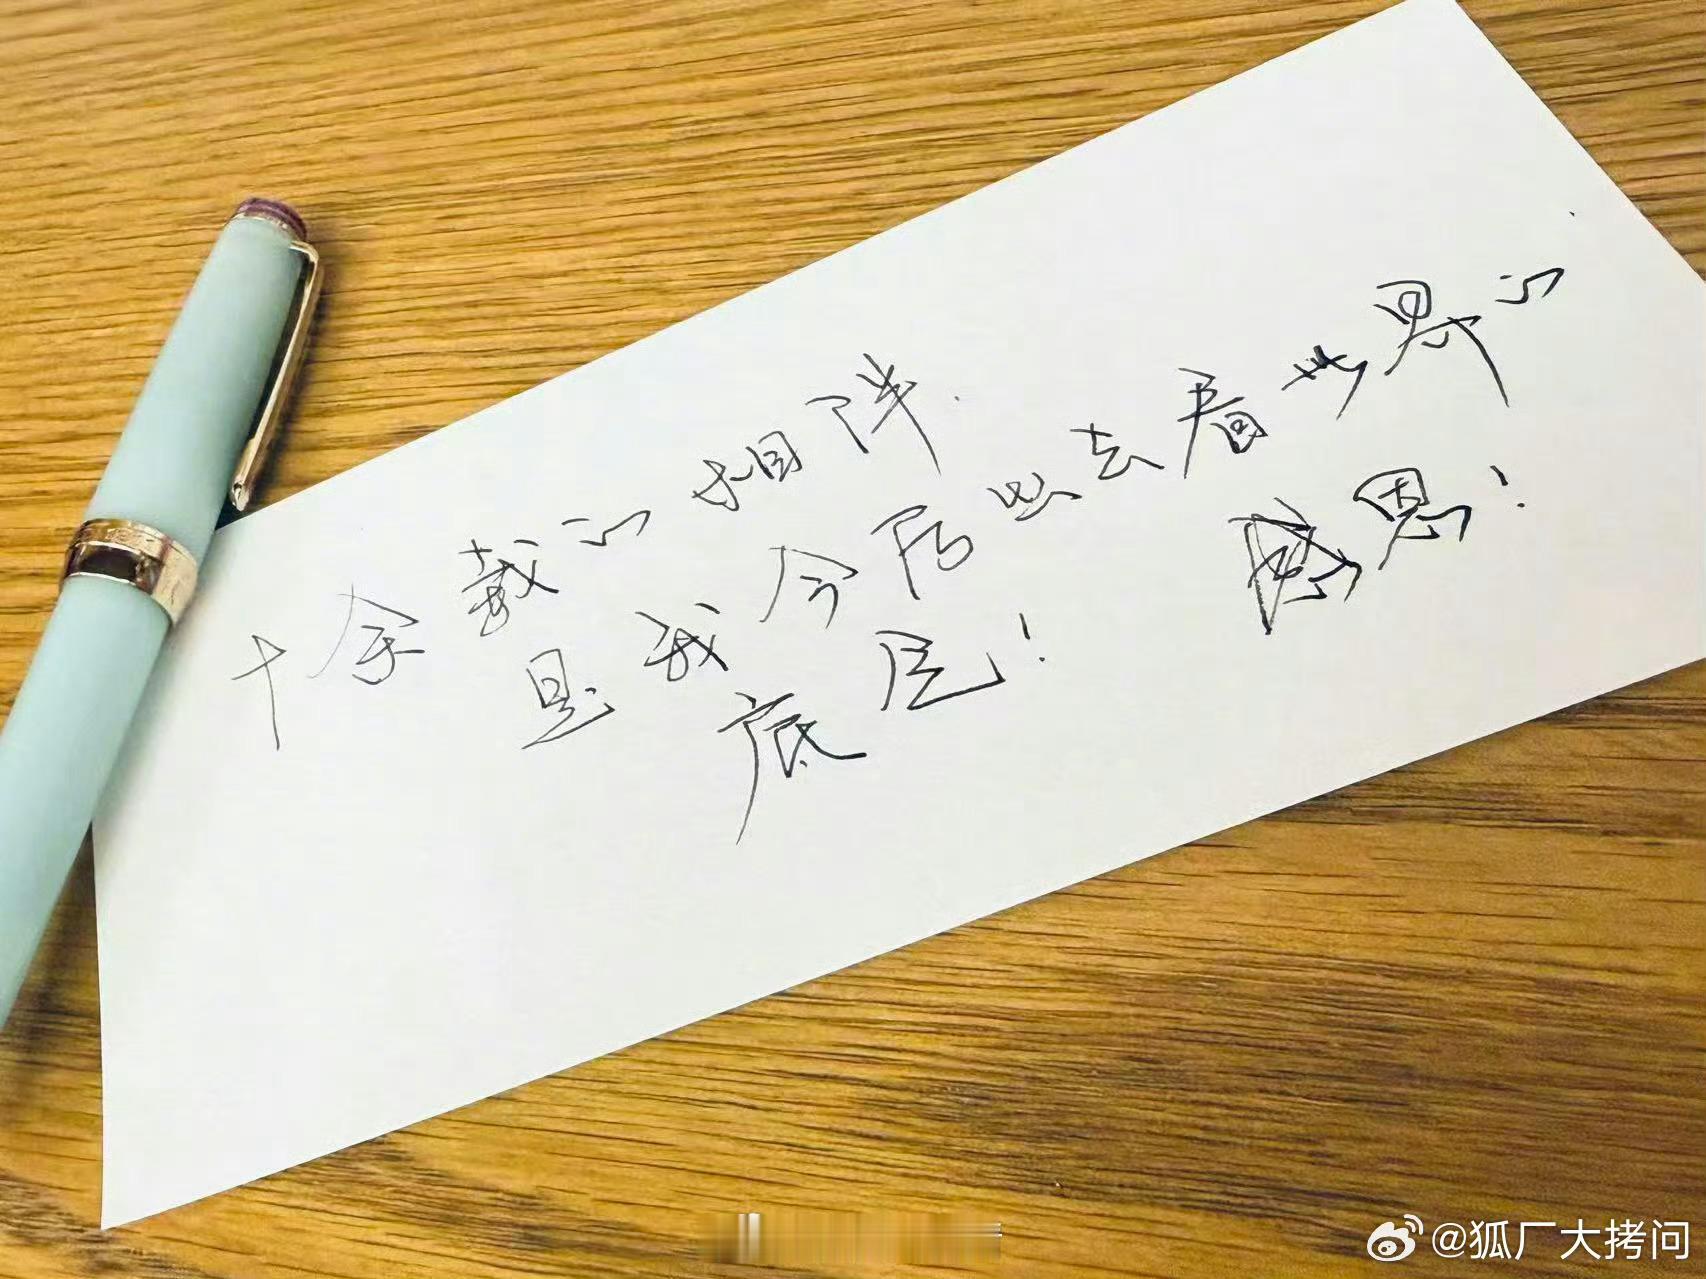 十余载的相伴.
是我今后出去看世界的
底气!
感恩!
@狐厂大拷问